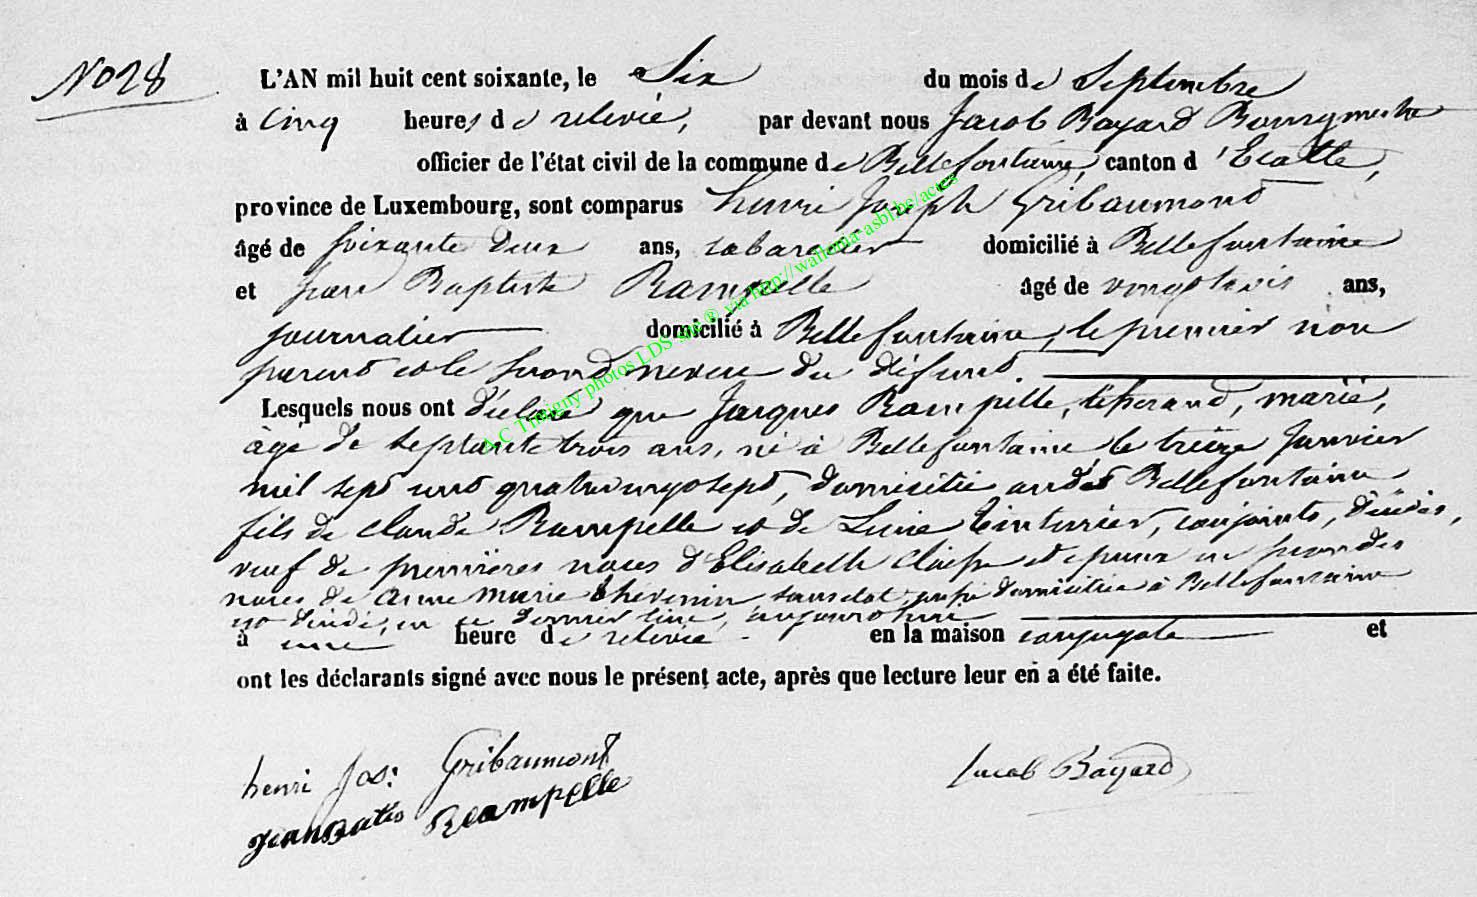 No 28
L'AN mil huit cent soixante, le Six du mois de Septembre
à cinq heures de relevée, par devant nous Jacob Bayard Bourgmestre
officier de l'état civil de la commune de Bellefontaine, canton d'Etalle,
province de Luxembourg, sont comparus henri Joseph Gribaumond
âgé de soixante deux ans, cabaretier domicilié à Bellefontaine
et Jean Baptiste Rampelle âgé de vingt trois ans,
journalier domicilié à Bellefontaine, le premier non
parent et le second neveu du défunt.
Lesquels nous ont déclaré que Jacques Rampelle, tisserand, marié,
âgé de septante trois ans, né à Bellefontaine le treize Janvier
mil sept cent quatre vingt sept, domicilié audit Bellefontaine
fils de Claude Rampelle et de Lucie Tinturier, conjoints, décédés,
veuf de premières noces d'Elisabeth et époux en secondes
noces de anne marie thévenin, sans profession domiciliée à Bellefontaine
est décédé, en ce dernier lieu, aujourd'hui
à une heure de relevée en la maison conjugale et
ont les déclarants signé avec nous le présent acte, après que lecture leur en a été faite.
henri Jos: Gribaumont Jacob Bayard
Jean Batis Rampelle
A.C Tintigny photos LDS sur ® via http://wallonia-asbl.be/actes